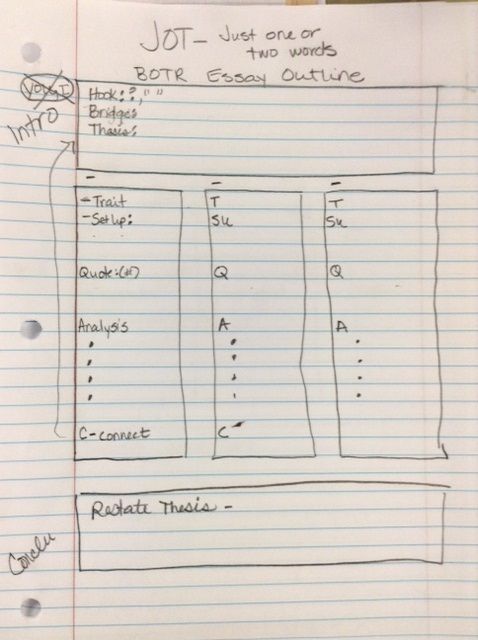 JOT- Just one or
two words
BOTR Essay Outline
Intro
Hook: ?, " "
Bridge:
Thesis:
- Trait
- Set up:
Quote: (#)
Analysis
C-connect
T
Su
Q
A
C
T
Su
Q
A
Restate Thesis -
Conclu